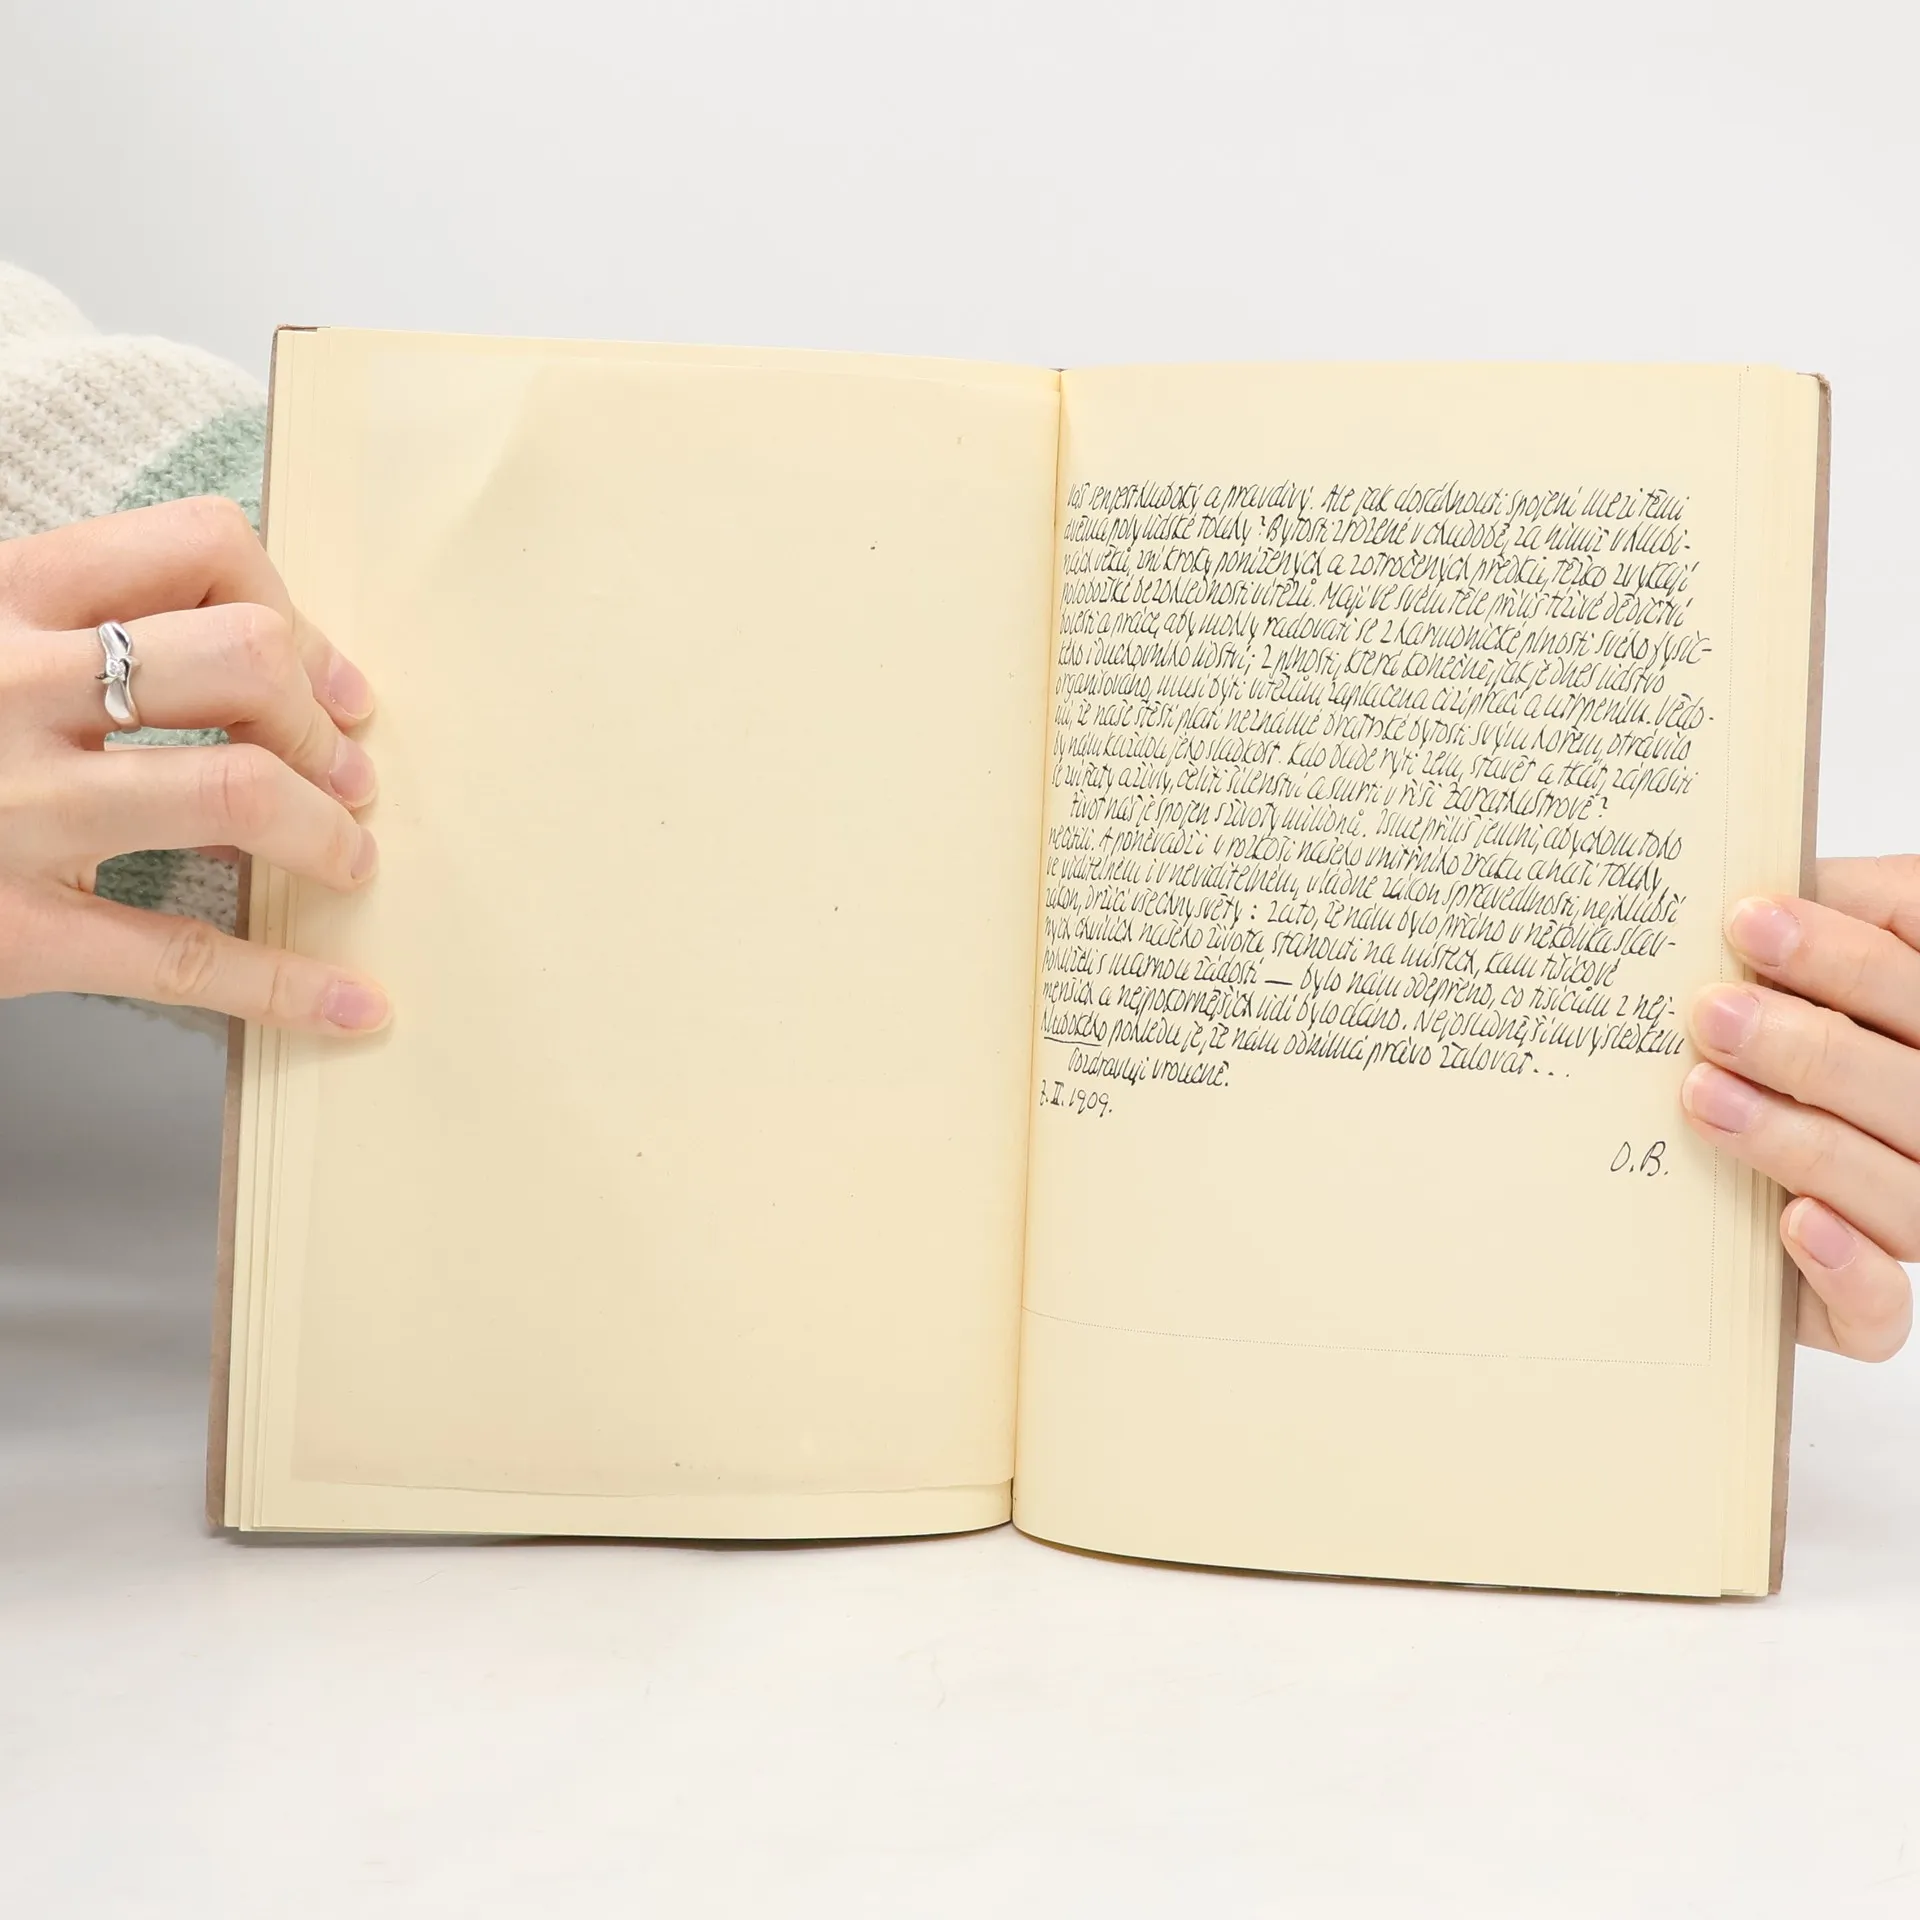 Váš sen jest hluboký a pravdivý. Ale jak dosáhnouti spojení mezi těmi
dvěma poly lidské touhy? Bytosti zrozené v chudobě, za nimiž v hlubi-
nách věků, zní kroky ponížených a zotročených předků, těžko zvykají
polobožské bezohlednosti vítězů. Mají ve svém těle příliš tíživé dědictví
bolesti a práce, aby mohly radovati se z harmonické plnosti svého fysic-
kého i duchovního lidství; z plnosti, která konečně, jak je dnes lidstvo
organisováno, musí býti vítězům zaplacena cizí prací a utrpením. Vědo-
mí, že naše štěstí platí neznámé bratrské bytosti svým hořem, otrávilo
by nám každou jeho sladkost. Kdo bude rýti zem, stavět a tkát, zápasiti
se zvířaty a živly, čeliti šílenství a smrti v říši Zarathustrově?
Život náš je spojen s životy milionů. Jsme příliš jemní, abychom toho
necítili. A poněvadž i v rozkoši našeho vnitřního zraku a naší touhy,
ve viditelném i v neviditelném, vládne zákon spravedlnosti, nejhlubší
zákon, držící všechny světy: zato, že nám bylo přáno v několika slav-
ných chvílích našeho života stanouti na místech, kam tisícové
pohlíželi s marnou žádostí — bylo nám odepřeno, co tisícům z nej-
menších a nejpokornějších lidí bylo dáno. Nejposlednějším výsledkem
hlubokého pohledu je, že nám odnímá právo žalovat...
Pozdravuji vroucně.
7. II. 1909.
O. B.